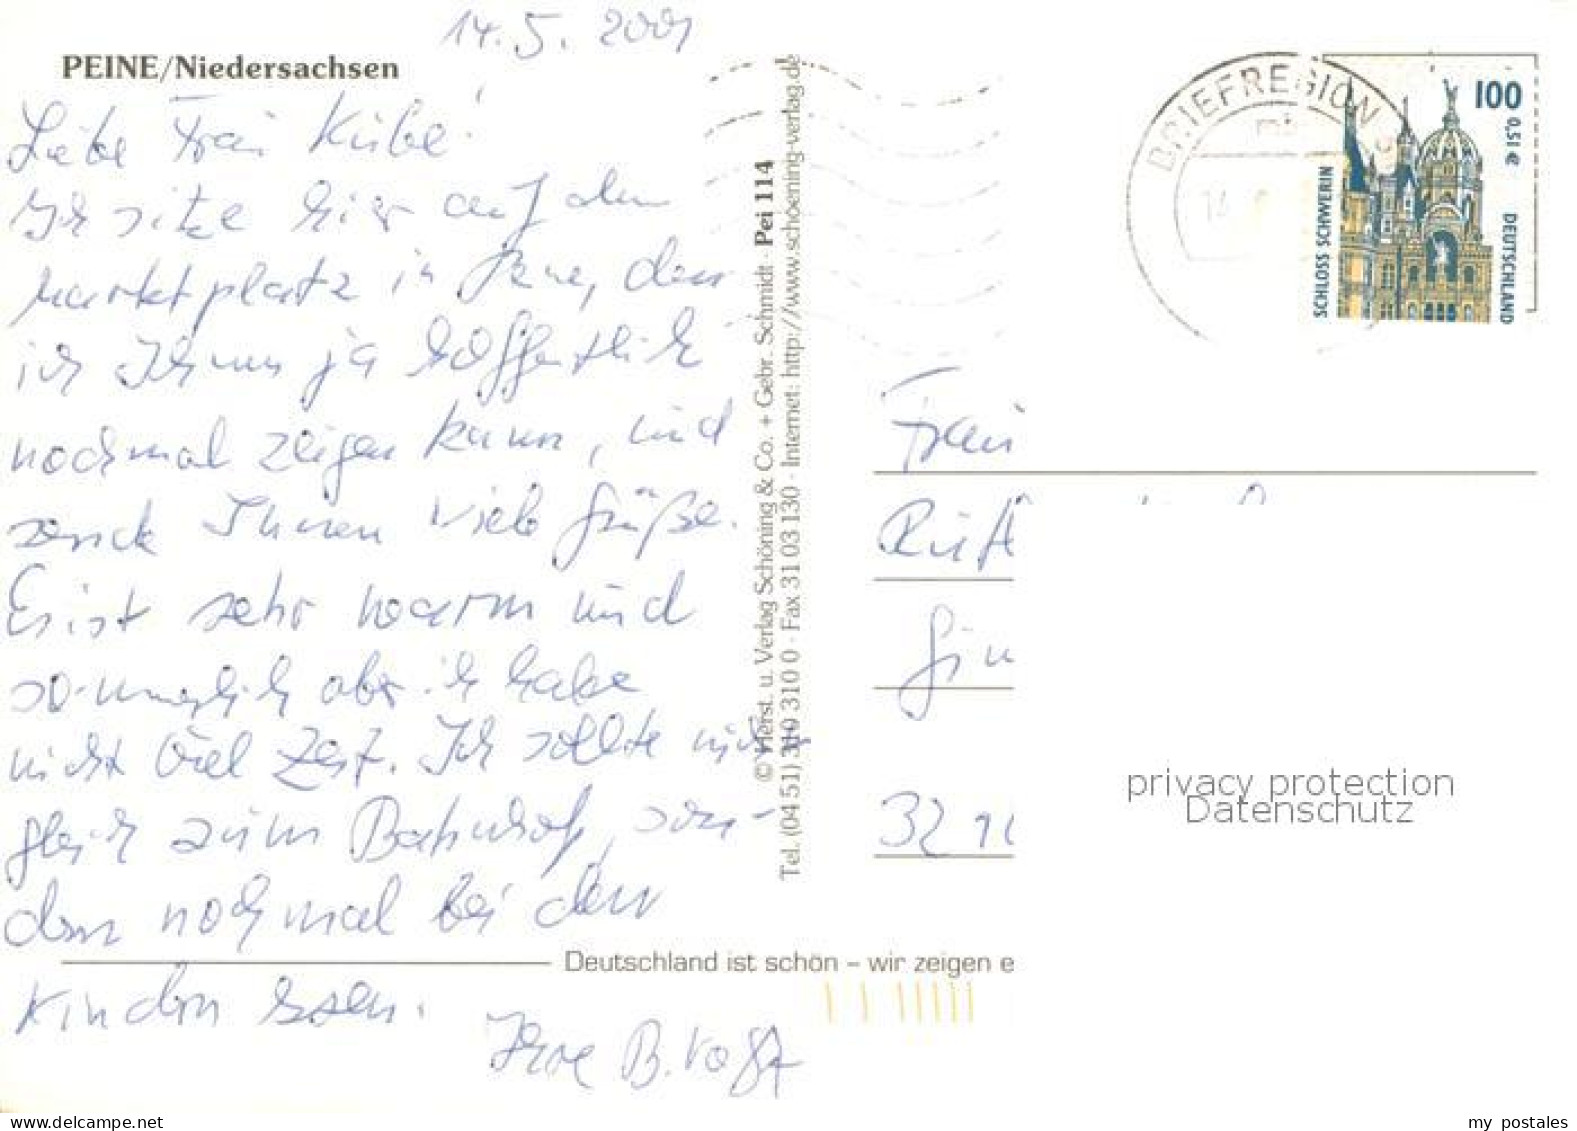 14.5. 2001
PEINE/Niedersachsen
Liebe Frau Kube!
Ich sitze hier auf dem
Marktplatz in Peine, den
ich Ihnen ja hoffentlich
nochmal zeigen kann, und
sende Ihnen viele Grüße.
Es ist sehr warm und
aber ich habe
nicht viel Zeit. Ich sollte nicht
gleich zum Bahnhof, son-
dern nochmal bei den
Kindern essen.
Ihre B. Vogt
© Herst. u. Verlag Schöning & Co. + Gebr. Schmidt · Pei 114
Tel. (04 51) 310 310 0 · Fax 31 03 130 · Internet: http://www.schoening-verlag.de
BRIEFREGION
SCHLOSS SCHWERIN
100
0,51 €
DEUTSCHLAND
Frau
privacy protection
Datenschutz
Deutschland ist schön – wir zeigen e
my postales